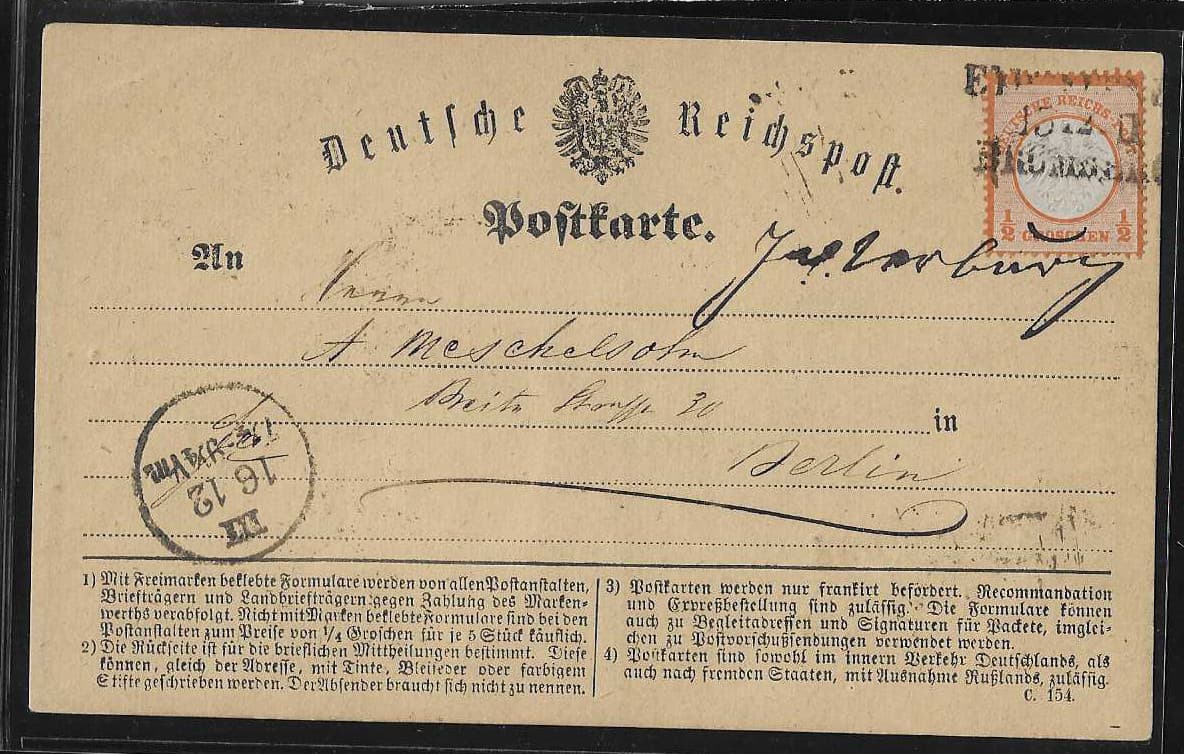 Deutsche Reichspost.
Postkarte.
DEUTSCHE REICHS-
1/2 GROSCHEN 1/2
An
Insterburg
Herrn
A Meschelsohn
Breite Straße 20
in
Berlin
16 12
III
1) Mit Freimarken beklebte Formulare werden von allen Postanstalten,
Briefträgern und Landbriefträgern gegen Zahlung des Marken-
werths verabfolgt. Nicht mit Marken beklebte Formulare sind bei den
Postanstalten zum Preise von 1/4 Groschen für je 5 Stück käuflich.
2) Die Rückseite ist für die brieflichen Mittheilungen bestimmt. Diese
können, gleich der Adresse, mit Tinte, Bleifeder oder farbigem
Stifte geschrieben werden. Der Absender braucht sich nicht zu nennen.
3) Postkarten werden nur frankirt befördert. Recommandation
und Expreßbestellung sind zulässig. Die Formulare können
auch zu Begleitadressen und Signaturen für Packete, imglei-
chen zu Postvorschußsendungen verwendet werden.
4) Postkarten sind sowohl im innern Verkehr Deutschlands, als
auch nach fremden Staaten, mit Ausnahme Rußlands, zulässig.
C. 154.